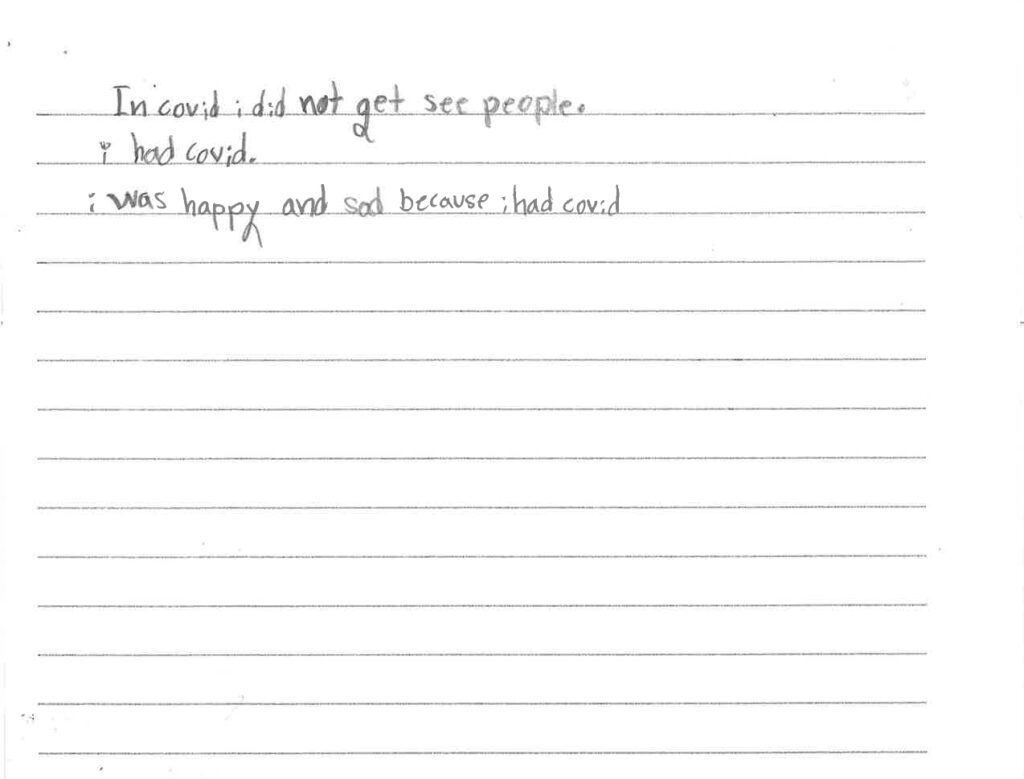 In covid i did not get see people.
i had covid.
i was happy and sad because i had covid